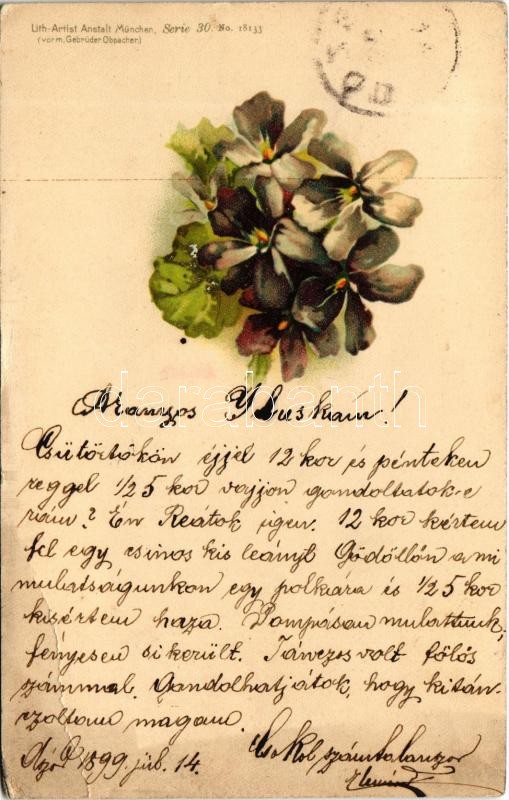 Lith-Artist Anstalt München, Serie 30. No. 18133
(vorm. Gebrüder Obpacher)
Aranyos Yluskám!
Csütörtökön éjjel 12 kor és pénteken
reggel 1/2 5 kor vajjon gondoltatok-e
rám? Én Reátok igen. 12 kor kértem
fel egy csinos kis leányt Gödöllőn a mi
mulatságunkon egy polkára és 1/2 5 kor
kisértem haza. Pompásan mulattunk,
fényesen sikerült. Tánczos volt fölös
számmal. Gondolhatjátok, hogy kitán-
czoltam magam.
1899. júl. 14. Csokol számtalanszor
darabanth